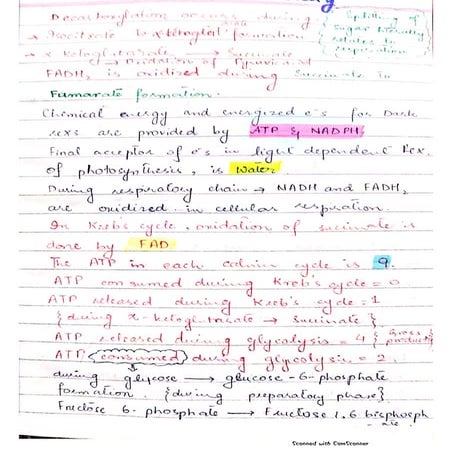 Decarboxylation occurs during
Splitting of
sugar literally
relates to
respiration
→ Isocitrate to α ketoglut formation
→ α Ketoglutarate → Succinate
→ Oxidation of Pyruvic acid
FADH₂ is oxidized during Succinate to
Fumarate formation.
Chemical energy and energized e⁻s for Dark
rexs are provided by ATP & NADPH
Final acceptor of e⁻s in light dependent Rex.
of photosynthesis, is Water
During respiratory chain → NADH and FADH₂
are oxidized in cellular respiration.
In Kreb's cycle, oxidation of succinate is
done by FAD
The ATP in each calvin cycle is 9.
ATP consumed during Kreb's cycle = 0
ATP released during Kreb's cycle = 1
{during α-ketoglutarate → succinate}
ATP released during glycolysis = 4 {Gross product}
ATP consumed during glycolysis = 2.
during glycose → glucose-6-phosphate
formation. {during preparatory phase}
Fructose 6-phosphate → Fructose 1.6 bisphosph
ate
Scanned with CamScanner